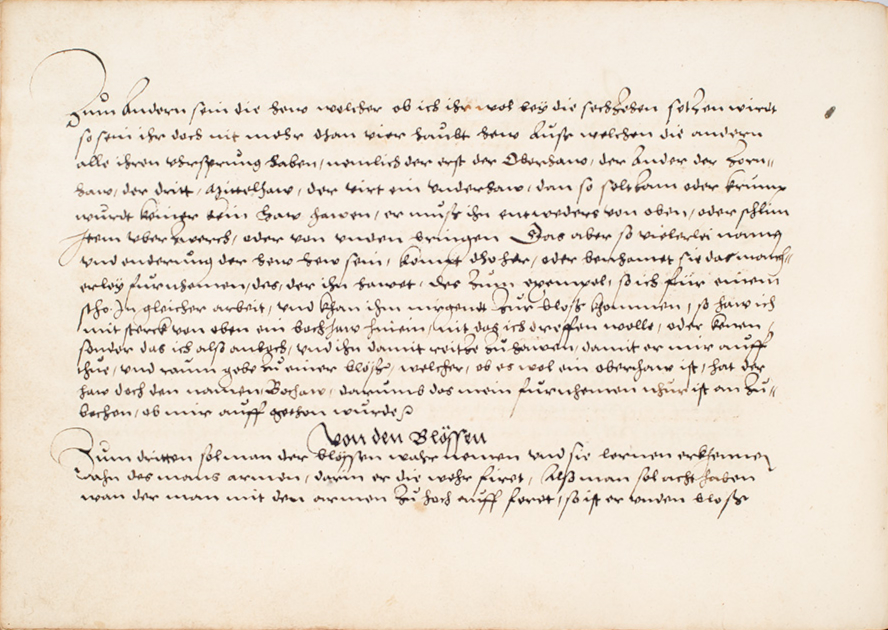 Zum Andern sein die hew welcher ob ich ihr wol bey die sechzehen setzen wirdt
so sein ihr doch nit mehr dan vier haubt hew Auss welchen die andern
alle ihren vhrsprung haben, nemlich der erst der Oberhaw, der Ander der Zorn-
haw, der dritt, Mittelhaw, der virt ein vnderhaw, dan so seltzam oder krump
wurdt keiner kein Haw hawen, er muss ihn entweders von oben, oder schlim
vber zwerch, oder von vnden bringen Das aber so vielerlei namen
vnd enderung der hew hew sein, kompt dhoher, oder benhamet sie das manch-
erley furnhemen, des, der ihn hawet, Als zum exempel, so ich für einem
stho. In gleicher arbeit, vnd khan ihm nirgendt zur bloss khommen, so haw ich
mit sterck von oben ein bochhaw hinein, nit das ich dreffen wolle, oder keren,
sonder das ich also anboch, vnd ihn damit reitze zu hawen, damit er mir auff
thue, vnd raum gebe zu einer blösse, welcher, ob es wol ein oberhaw ist, hat der
haw doch den namen, Bochaw, darumb das mein furnhemen nhur ist an zu-
bochen, ob mir auff gethon wurde
Von den Blössen
Zum dritten sol man der blössen wahr nemen vnd sie lernen erkennen
ahn des mans armen, darin er die wehr firet, Also man sol acht haben
wan der man mit den armen zu hoch auff feret, so ist er vnden bloss